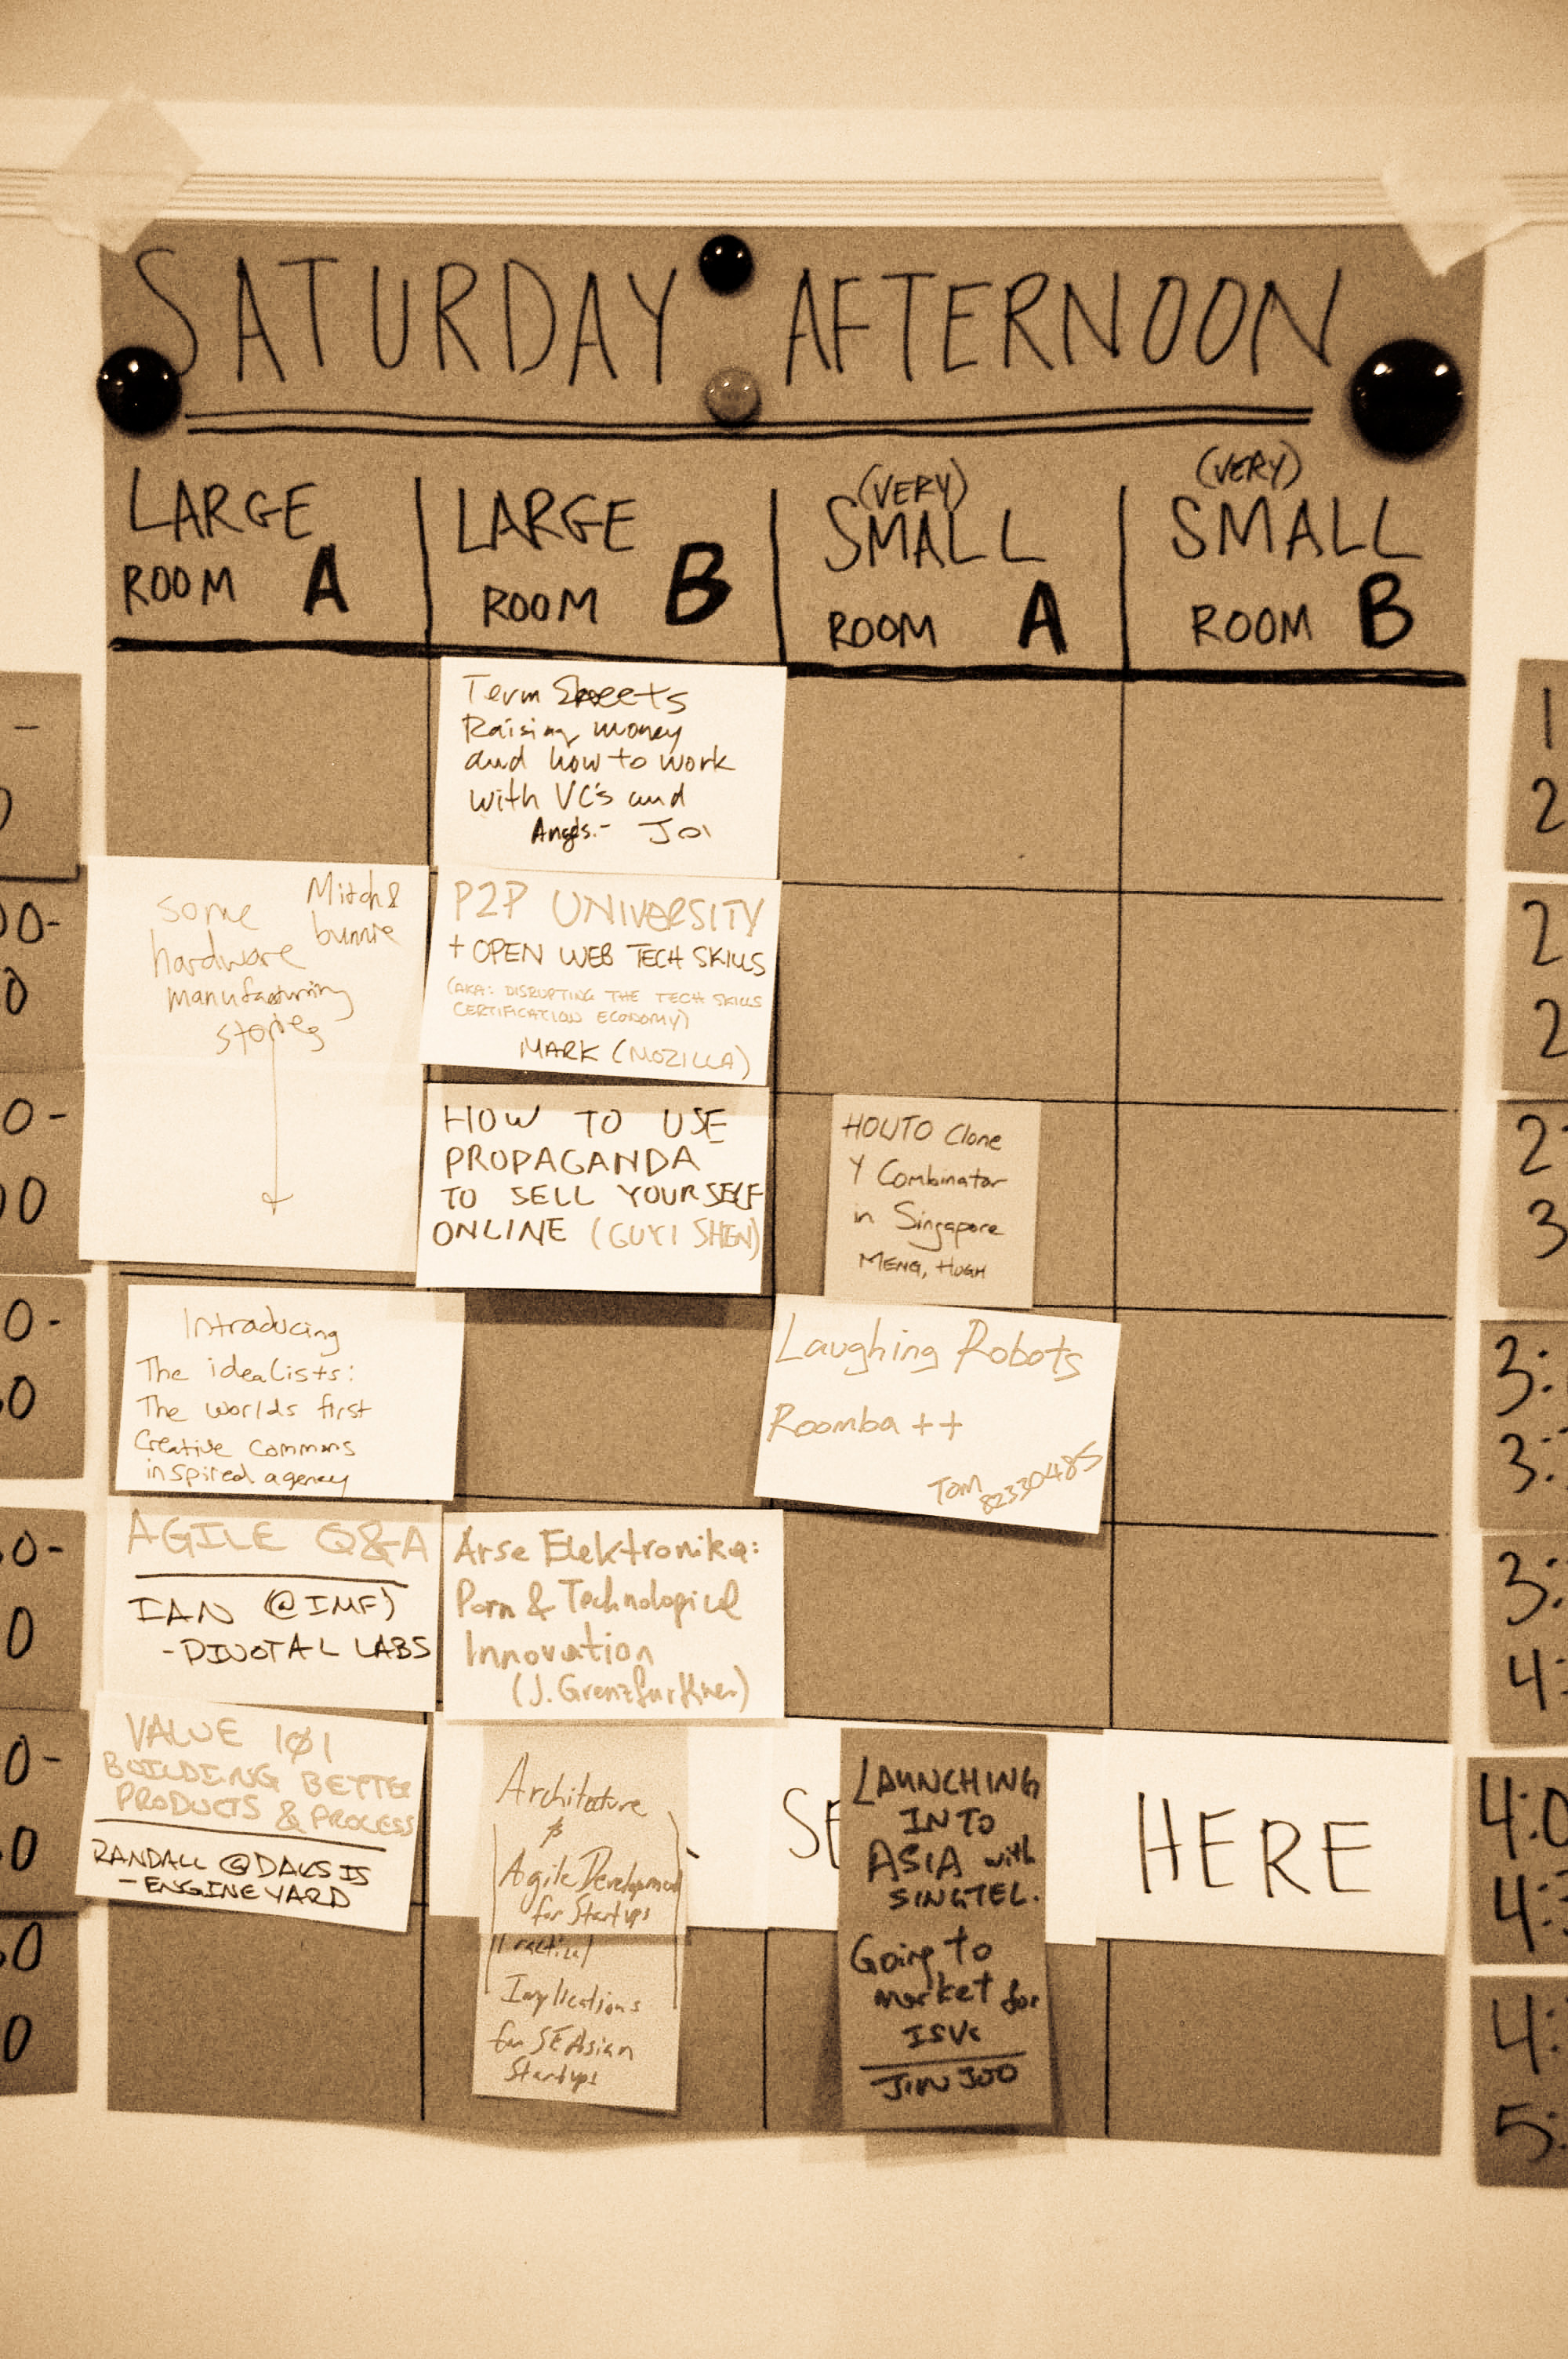 SATURDAY AFTERNOON
LARGE
ROOM A
LARGE
ROOM B
(VERY)
SMALL
ROOM A
(VERY)
SMALL
ROOM B
Term Sheets
Raising money
and how to work
with VC's and
Angels.- Joi
Some
hardware
manufacturing
stories
Mitch &
bunnie
P2P UNIVERSITY
+ OPEN WEB TECH SKILLS
(AKA: DISRUPTING THE TECH SKILLS
CERTIFICATION ECONOMY)
MARK (MOZILLA)
HOW TO USE
PROPAGANDA
TO SELL YOURSELF
ONLINE (GUYI SHEN)
HOWTO Clone
Y Combinator
in Singapore
MENG, HUGH
Introducing
The ideaLists:
The worlds first
Creative Commons
inspired agency
Laughing Robots
Roomba ++
TOM
82330485
AGILE Q&A
IAN (@IMF)
- PIVOTAL LABS
Arse Elektronika:
Porn & Technological
Innovation
(J. Grenzfurthner)
VALUE 101
BUILDING BETTER
PRODUCTS & PROCESS
RANDALL @DAKSIS
- ENGINEYARD
Architecture
&
Agile Development
for Startups
Practical
Implications
for SE Asian
Startups
SE
LAUNCHING
INTO
ASIA with
SINGTEL.
Going to
market for
ISVs
JIN JOO
HERE
-
00-
0
0-
00
0-
0
0-
0
0-
0
0
0
1
2
2
2
2:
3
3:
3:
3:
4:
4:0
4:
4:
5: